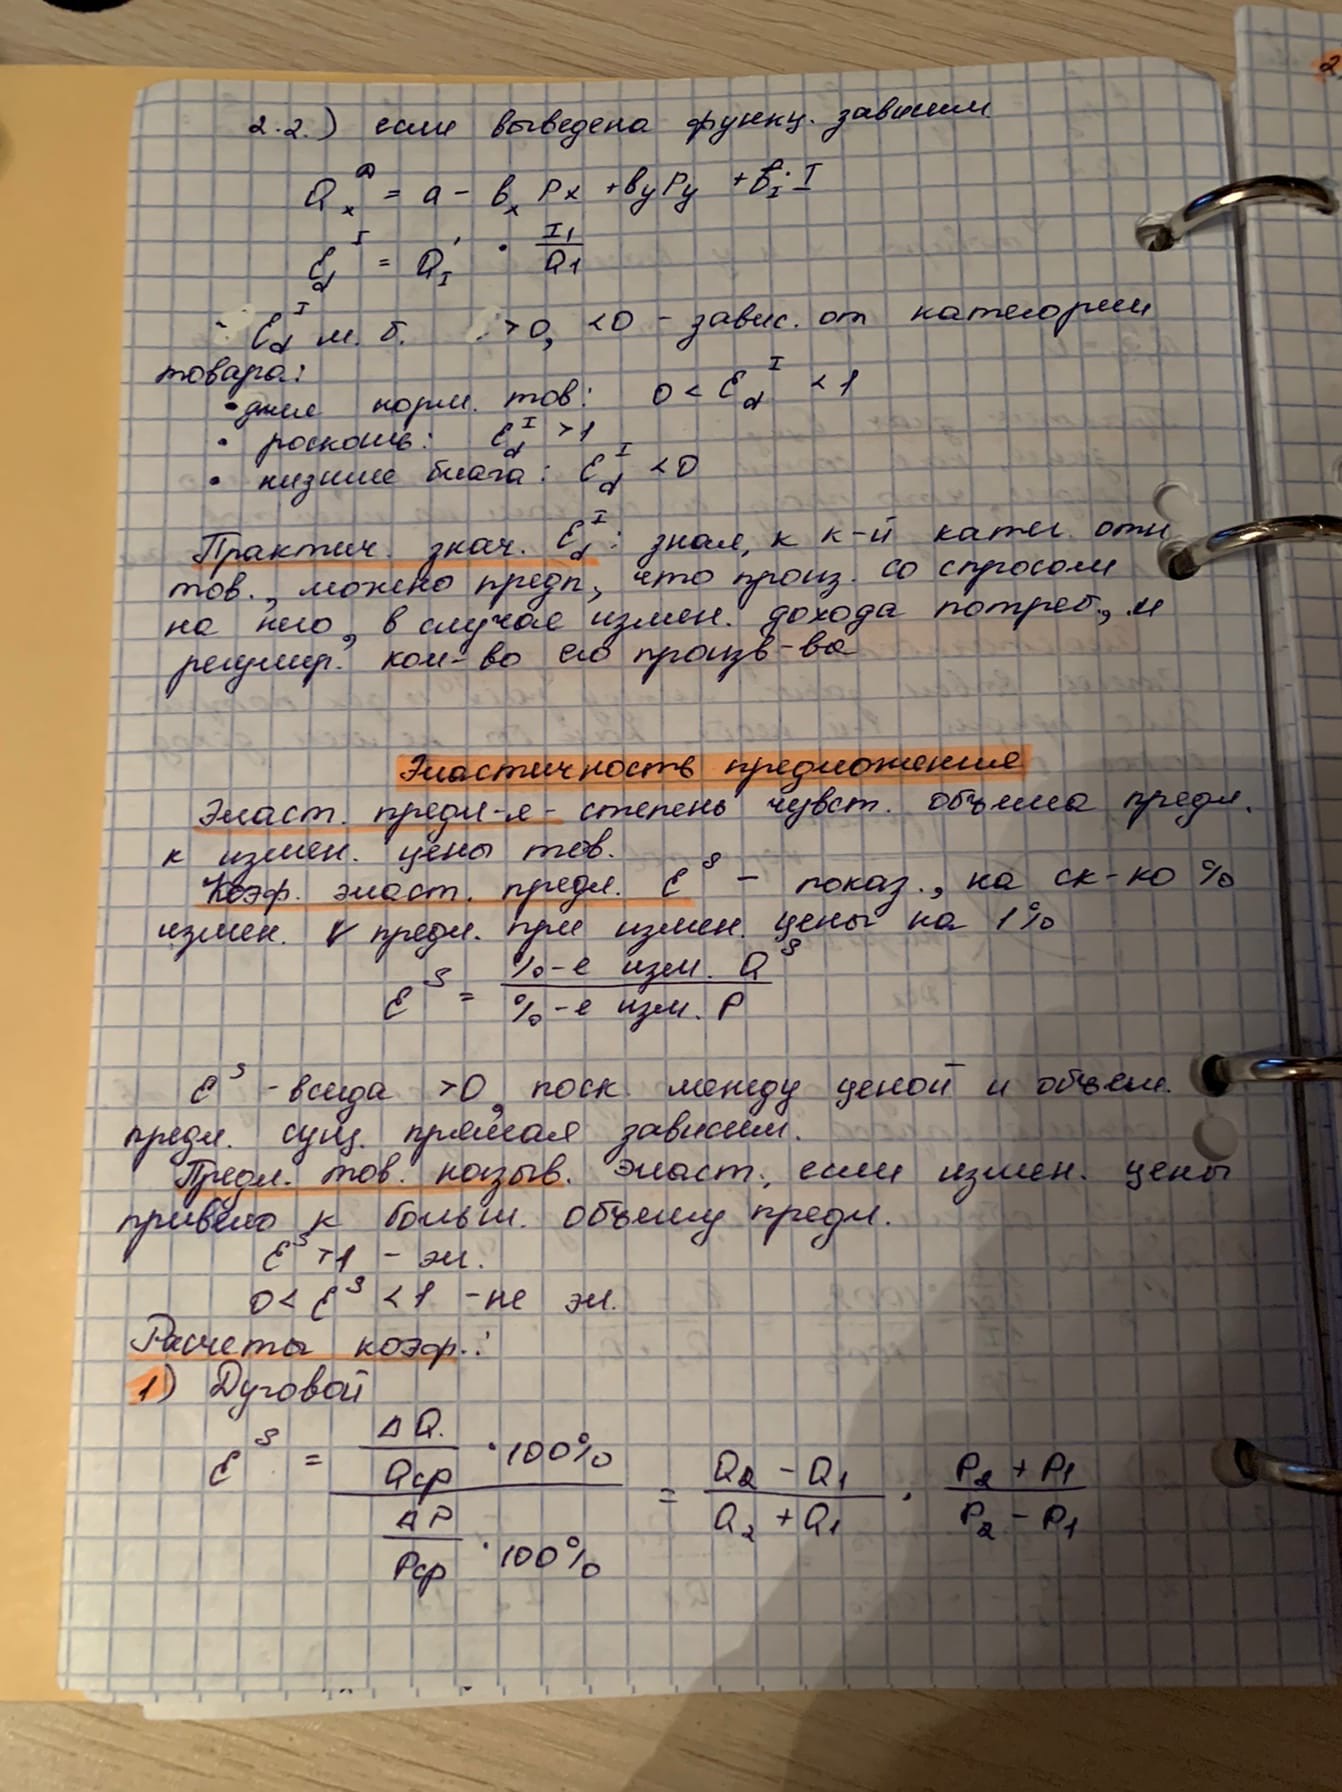 2.2.) если выведена функц. зависим
Qxᴰ = a - bₓ Pₓ + bᵧPᵧ + bᵢ·I
Edᴵ = Q'ᵢ · I₁/Q₁
Edᴵ м.б. >0, <0 - завис. от категории
товара:
• для норм. тов: 0 < Edᴵ < 1
• роскошь: Edᴵ >1
• низшие блага: Edᴵ <0
Практич. знач. Edᴵ: зная, к к-й катег. отн
тов., можно предп, что произ. со спросом
на него, в случае измен. дохода потреб., и
регулир. кол-во его произв-ва
Эластичность предложения
Эласт. предл-я - степень чувст. объема предл.
к измен. цены тов.
Коэф. эласт. предл. Eˢ - показ., на ск-ко %
измен. V предл. при измен. цены на 1%
Eˢ = %-е изм. Qˢ / %-е изм. P
Eˢ - всегда >0, поск между ценой и объем.
предл. сущ. прямая зависим.
Предл. тов. назыв. эласт., если измен. цены
привело к больш. объему предл.
Eˢ >1 - эл.
0 < Eˢ < 1 - не эл.
Расчеты коэф.:
1) Дуговой
Eˢ = (ΔQ/Qср · 100%) / (ΔP/Pср · 100%) = (Q₂ - Q₁)/(Q₂ + Q₁) · (P₂ + P₁)/(P₂ - P₁)